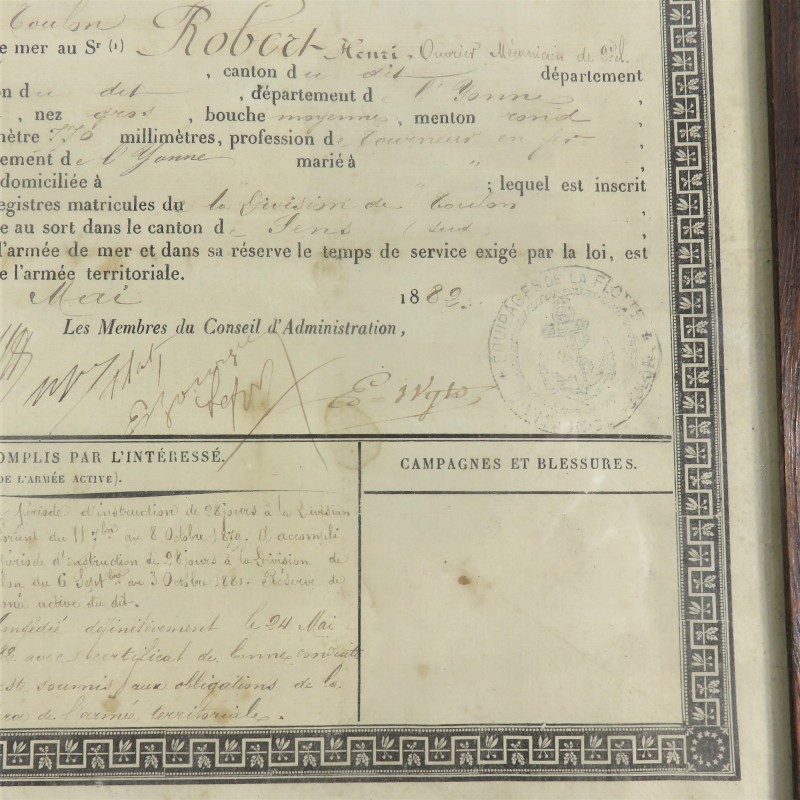 Toulon
de mer au Sr (1) Robert Henri, Ouvrier Mécanicien de
, canton du dit département
on du dit , département de l'Yonne ,
, nez gros , bouche moyenne , menton rond
mètre 770 millimètres, profession de tourneur en fer
ement de l'Yonne marié à " ,
domiciliée à " " ; lequel est inscrit
egistres matricules du la Division de Toulon ,
e au sort dans le canton de Sens (sud) ,
l'armée de mer et dans sa réserve le temps de service exigé par la loi, est
e l'armée territoriale.
Mai 1882.
Les Membres du Conseil d'Administration,
EQUIPAGES DE LA FLOTTE
OMPLIS PAR L'INTÉRESSÉ.
DE L'ARMÉE ACTIVE).
CAMPAGNES ET BLESSURES.
période d'instruction de 28 jours à la Division
du 11 7bre au 8 Octobre 1879. Il accompli
période d'instruction de 28 jours à la Division de
on du 6 Septbre au 3 Octobre 1881. Réserve de
mée active du dit.
Congédié définitivement le 24 Mai
82 avec certificat de bonne conduite
este soumis aux obligations de la
de l'armée territoriale.